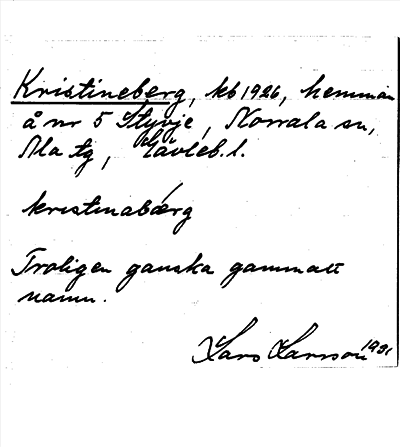 Kristineberg, kb 1926, hemman
å nr 5 Styvje, Norrala sn,
Ala tg, Gävleb. l.
kristinabärg
Troligen ganska gammalt
namn.
Lars Larsson